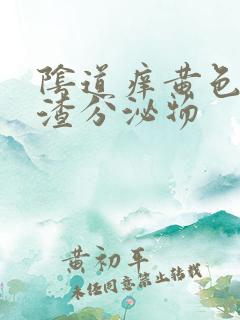 陰道痒黄色
渣分泌物
黄初平
未经同意禁止转载